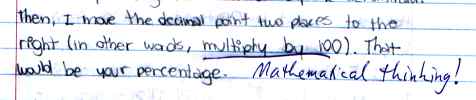 Then, I move the decimal point two places to the
right (in other words, multiply by 100). That
would be your percentage. Mathematical thinking!